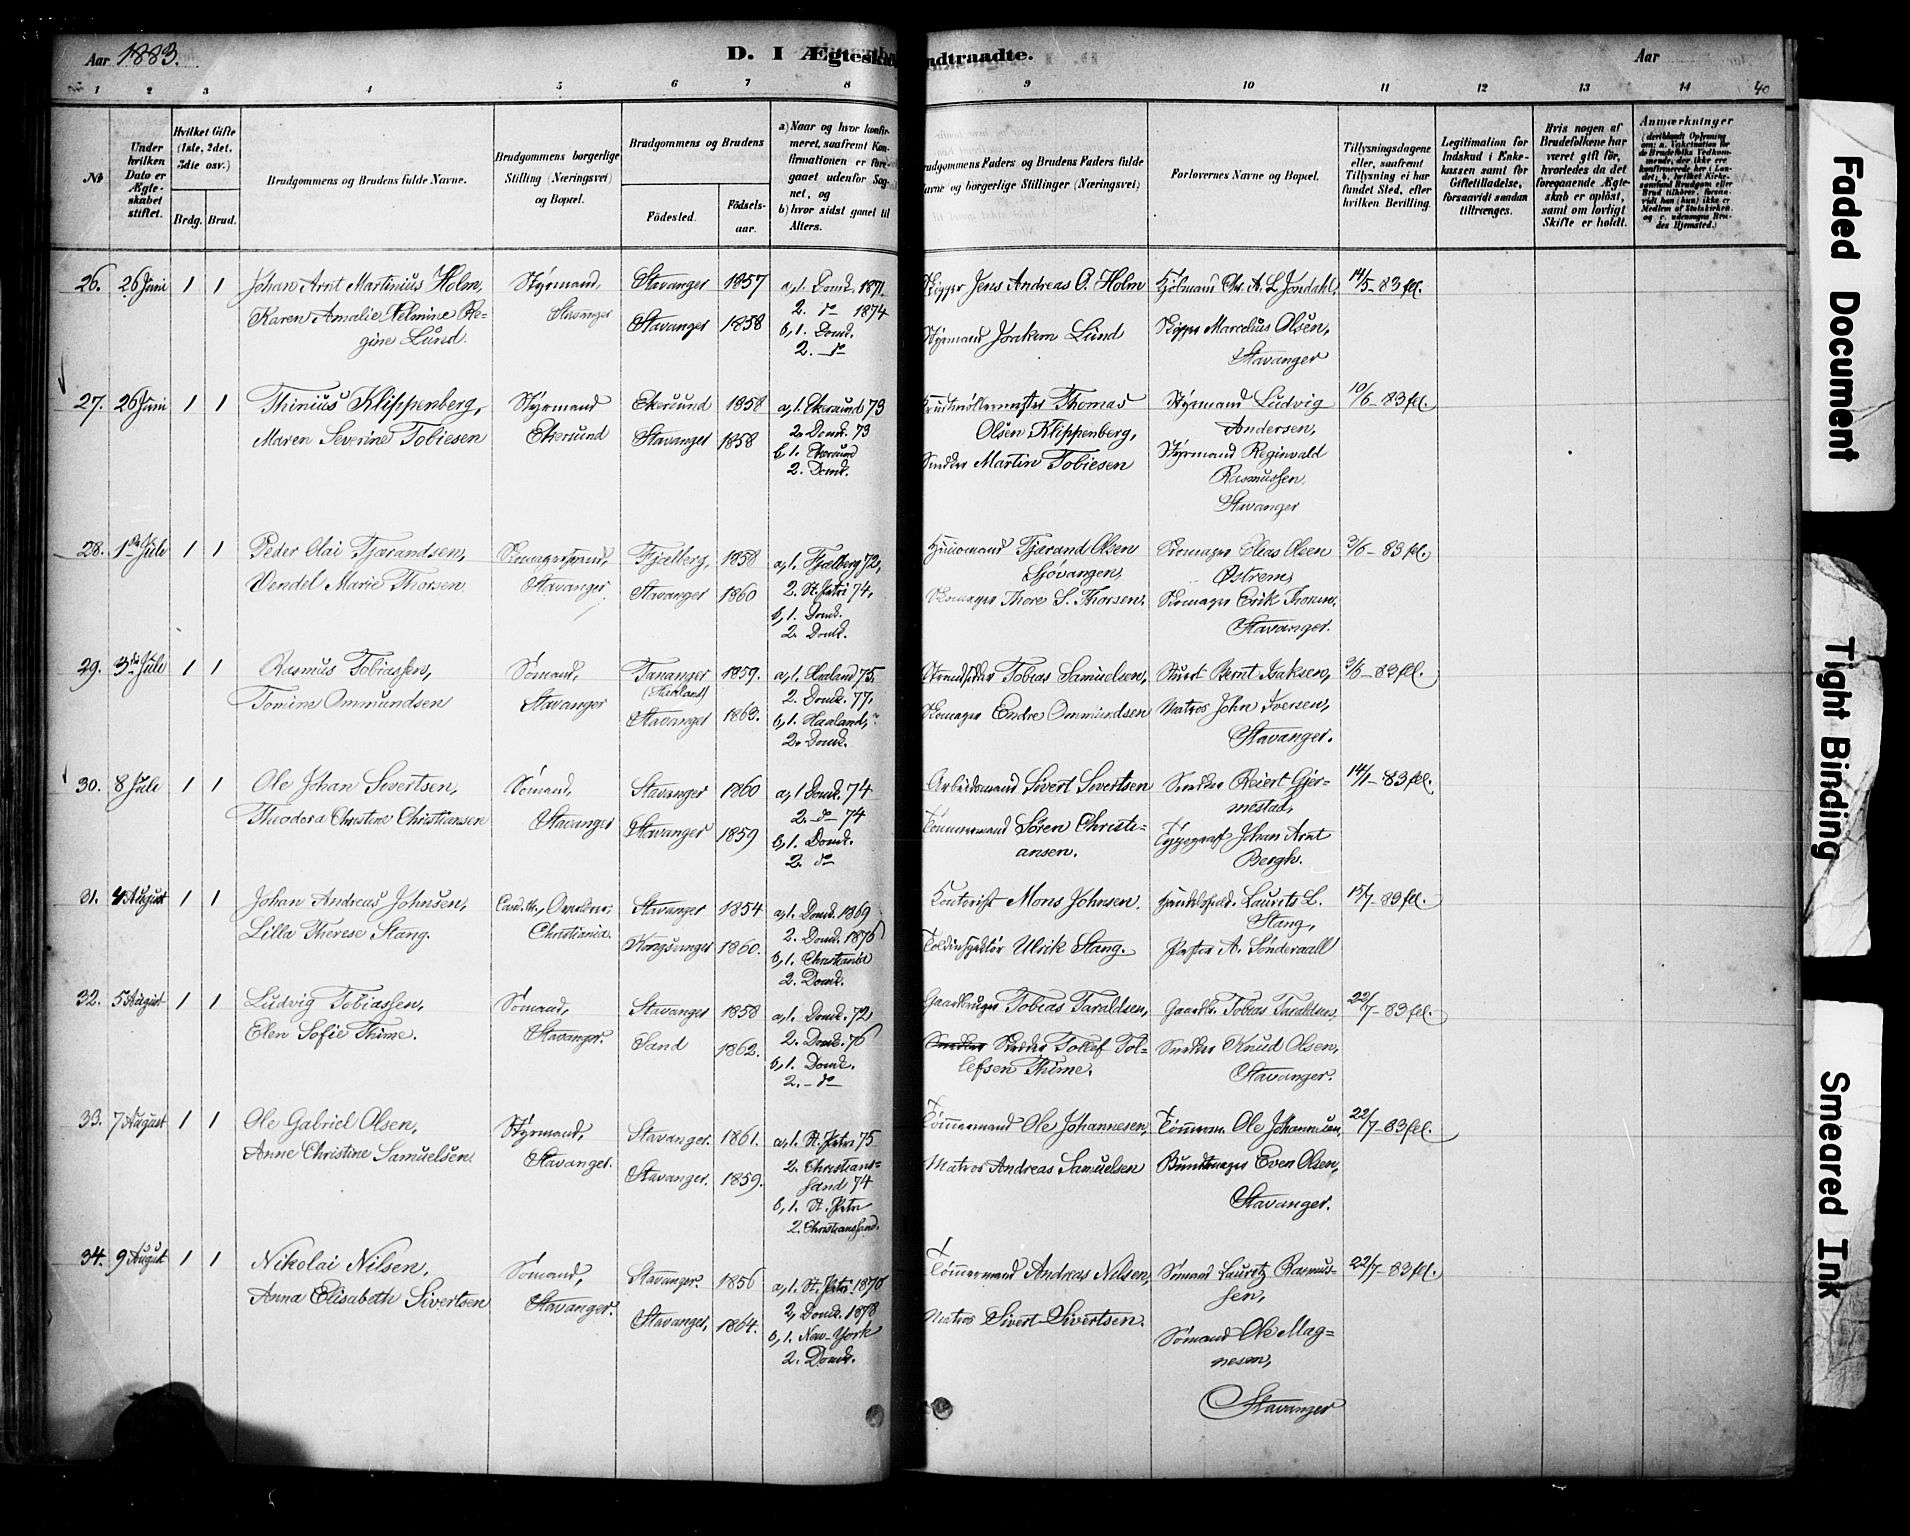 Aar 1883.
D. I Ægteska
ndtraadte.
Aar
1 2 3 4 5 6 7 8 9 10 11 12 13 14 40
№
Under hvilken Dato er Ægteskabet stiftet.
Hvilket Gifte (1ste, 2det, 3die osv.)
Brdg. Brud.
Brudgommens og Brudens fulde Navne.
Brudgommens borgerlige Stilling (Næringsvei) og Bopæl.
Brudgommens og Brudens
Födested.
Födselsaar.
a) Naar og hvor konfirmeret, saafremt Konfirmationen er foregaaet udenfor Sognet, og
b) hvor sidst gaaet til Alters.
rudgommens Faders og Brudens Faders fulde
avne og borgerlige Stillinger (Næringsvei)
Forlovernes Navne og Bopæl.
Tillysningsdagene eller, saafremt Tillysning ei har fundet Sted, efter hvilken Bevilling.
Legitimation for Indskud i Enkekassen samt for Giftetilladelse, forsaavidt saadan tiltrænges.
Hvis nogen af Brudefolkene har været gift før, hvorledes da det foregaaende Ægteskab er oplöst, samt om lovligt Skifte er holdt.
Anmærkninger
26. 26 Juni 1 1 Johan Arnt Martinius Holm, Styrmand, Stavanger 1857 a, 1. Domk. 1871. Skipper Jens Andreas O. Holm Chr. A. L. Jondahl, 14/5-83 fl.
Karen Amalie Velmine Re- Stavanger Stavanger 1858 2. do 1874 Styrmand Joakim Lund Skipper Marcelius Olsen,
gine Lund. b, 1. Domk. Stavanger
2. do
27. 26 Juni 1 1 Thinius Klippenberg, Styrmand Ekersund 1858 a, 1. Ekersund 73 Thomas Styrmand Ludvig 10/6-83 fl.
Maren Severine Tobiesen Ekersund Stavanger 1858 2. Domk. 73 Olsen Klippenberg, Andersen,
b 1. Ekersund Smeder Martin Tobiesen Styrmand Reginvald
2. Domk. Rasmussen.
Stavanger
28. 1ste Juli 1 1 Peder Olai Tjærandsen, Fjælberg, 1858 a, 1. Fjælberg 72, Tjærand Olsen Skomager Elias Olsen 3/6-83 fl.
Vendel Marie Thorsen. Stavanger Stavanger 1860 2. St. Petri 74, Sjövangen, Østrem,
b, 1. Domk. Skomager Thore S. Thorsen, Skomager Erik Thorsen,
2. Domk. Stavanger.
29. 3die Juli 1 1 Rasmus Tobiassen, Sømand, Tananger 1859. a, 1. Haaland 75. Strandsidder Tobias Samuelsen, Stuert Bernt Isaksen, 3/6-83 fl.
Tomine Ommundsen Stavanger (Haaland) 2. Domk. 77, Skomager Endre Ommundsen Matros John Iversen,
Stavanger 1862. b, 1. Haaland, Stavanger.
2. Domk.
30. 8 Juli 1 1 Ole Johan Sivertsen, Sømand, Stavanger 1860 a, 1 Domk. 74 Arbeidsmand Sivert Sivertsen Smeder Reiert Gjer- 83 fl.
Theodora Christine Christiansen Stavanger Stavanger 1859 2. do 74 Tømmermand Søren Christi- mestad,
b, 1. Domk. ansen. Typograf Johan Arnt
2. do Bergh.
31. 4 August 1 1 Johan Andreas Johnsen, Cand. th., Stavanger 1854 a, 1. Domk. 1869 Kontorist Mons Johnsen. Laurits L. 15/7-83 fl.
Lilla Therese Stang. Christiania. Kongsvinger 1860. 2. Domk. 1876 Toldinspektör Ulrik Stang. Stang,
b, 1. Christiania Pastor A. Sönderaall
2. Domk.
32. 5 August 1 1 Ludvig Tobiassen, Sømand, Stavanger 1858 a, 1. Domk. 72 Gaardbruger Tobias Taraldsen, Gaardbr. Tobias Taraldsen, 22/7-83 fl.
Elen Sofie Thime. Stavanger. Sand 1862. 2. Domk. 76 Smeder Skræder Tollef Tol- Smeder Knud Olsen,
b, 1. Domk. lefsen Thime. Stavanger.
2. - do
33. 7 August 1 1 Ole Gabriel Olsen, Styrmand, Stavanger. 1861. a, 1. St. Petri 75 Tömmermand Ole Johannesen, Tömmerm. Ole Johannesen, 22/7-83 fl.
Anne Christine Samuelsen. Stavanger. Stavanger. 1859. 2. Christians- Matros Andreas Samuelsen Bundtmager Even Olsen,
sand 74 Stavanger.
b, 1. St. Petri
2. Christianssand.
34. 9 August 1 1 Nikolai Nilsen, Sømand, Stavanger. 1856 a, 1. St. Petri 1870 Tömmermand Andreas Nilsen, Sømand Lauritz Rasmus- 22/7-83 fl.
Anna Elisabeth Sivertsen Stavanger. Stavanger, 1864. 2, Domk. 1878 Matros Sivert Sivertsen. sen,
b, 1. New-York Sømand Ole Mag-
2. Domk. nesen,
Stavanger
Faded Document
Tight Binding
Smeared Ink